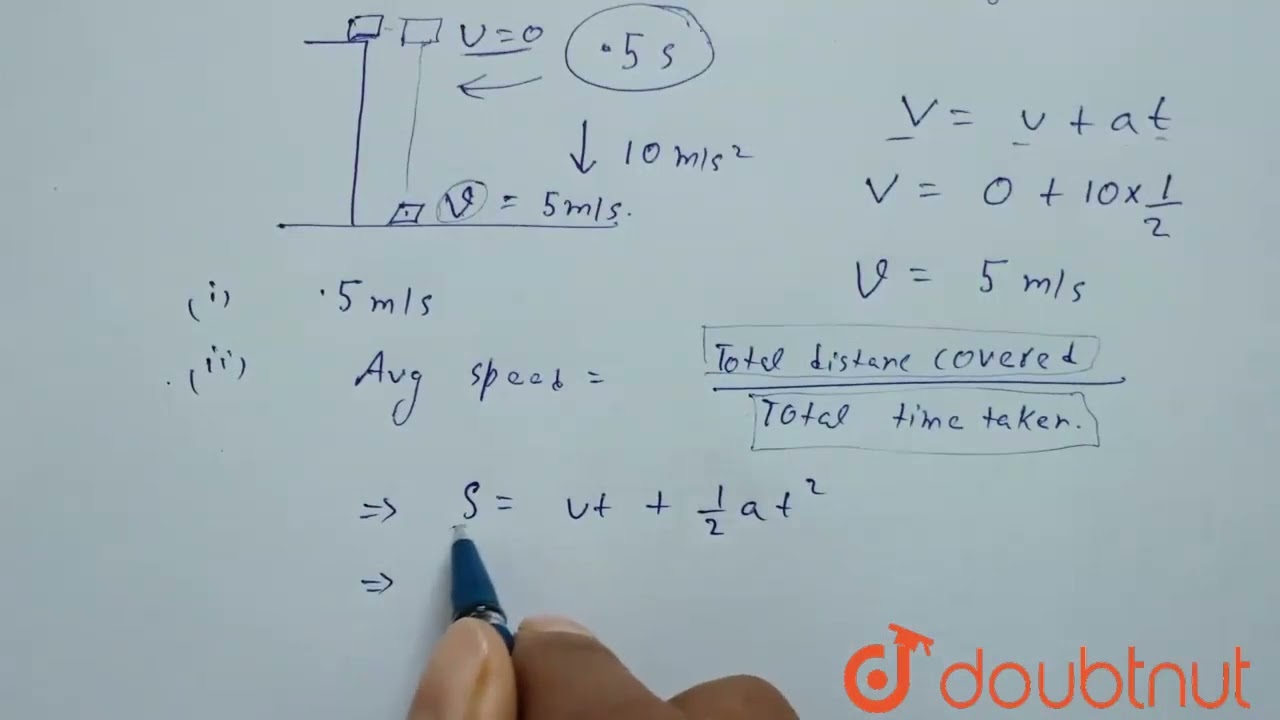 u=0
.5 s
10 m/s²
v = 5m/s.
V = u + at
V = 0 + 10×1/2
v = 5 m/s
(i) .5m/s
(ii) Avg speed = Total distane covered / Total time taken.
=> S = ut + 1/2 at²
=>
doubtnut